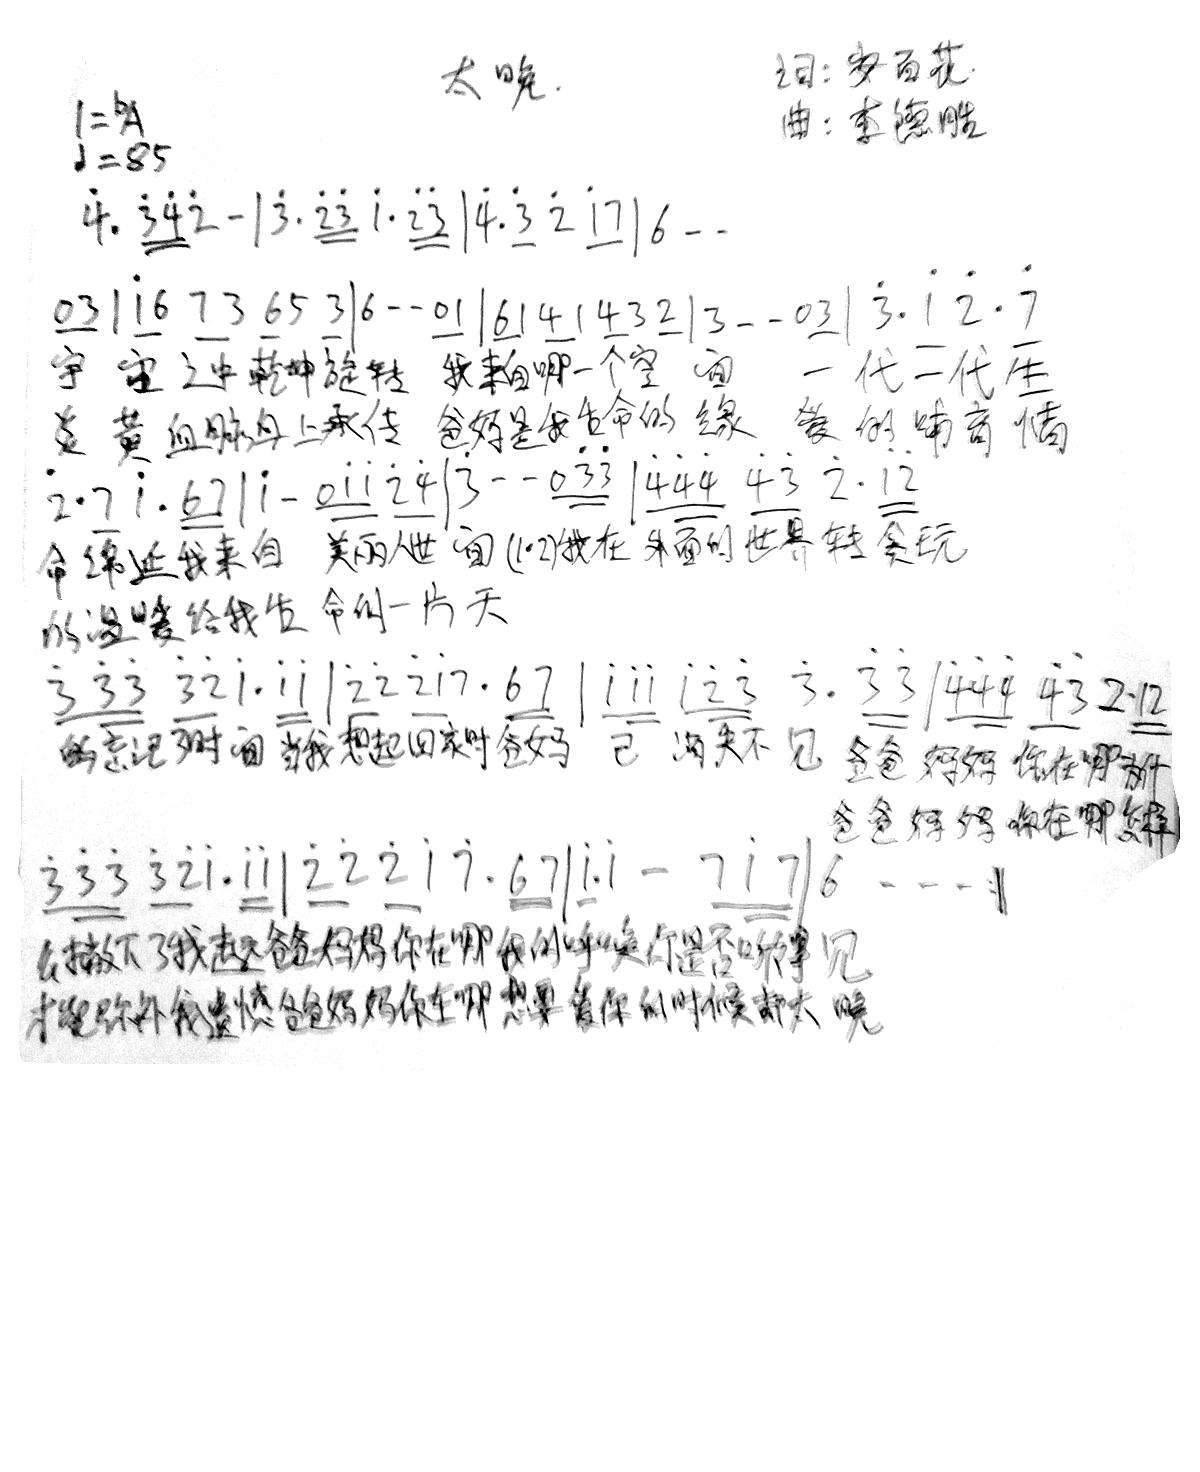 太晚.
词: 安百花.
曲: 李德胜
1=♭A
♩=85
4̇. 3̇4̇2̇ - | 3̇. 2̇3̇ 1̇. 2̇3̇ | 4̇. 3̇ 2̇ 1̇7 | 6 - -
03 | 1̇6 73 65 3 | 6 - - 01 | 61 41 43 2 | 3 - - 03 | 3̇. 1̇ 2̇. 7̇
宇宙之中乾坤旋转 我来自哪一个空间 一代一代生
炎黄血脉身上承传 爸妈是我生命的缘 爱的哺育情
2̇. 7 1̇. 67 | 1̇ - 01̇1̇ 2̇4̇ | 3̇ - - 03̇3̇ | 4̇4̇4̇ 4̇3̇ 2̇. 1̇2̇
命绵延我来自 美丽人世间(1.2)我在外面的世界转贪玩
的温暖给我生命的一片天
3̇ 3̇3̇ 3̇2̇1̇. 1̇1̇ | 2̇2̇ 2̇1̇7. 67 | 1̇1̇1̇ 1̇2̇3̇ 3̇. 3̇3̇ | 4̇4̇4̇ 4̇3̇ 2. 12
的忘记了时间当我想起回家时爸妈 已 消失不见 爸爸妈妈你在哪为什
爸爸妈妈你在哪怎样
3̇3̇3̇ 3̇2̇1̇. 1̇1̇ | 2̇2̇ 2̇1 7̇. 67 | 1̇. 1̇ - 71̇7 | 6 - - - :‖
么撇下了我走远爸爸妈妈你在哪我的呼唤你是否听得见
才能弥补我遗憾爸爸妈妈你在哪想要爱你的时候却太晚